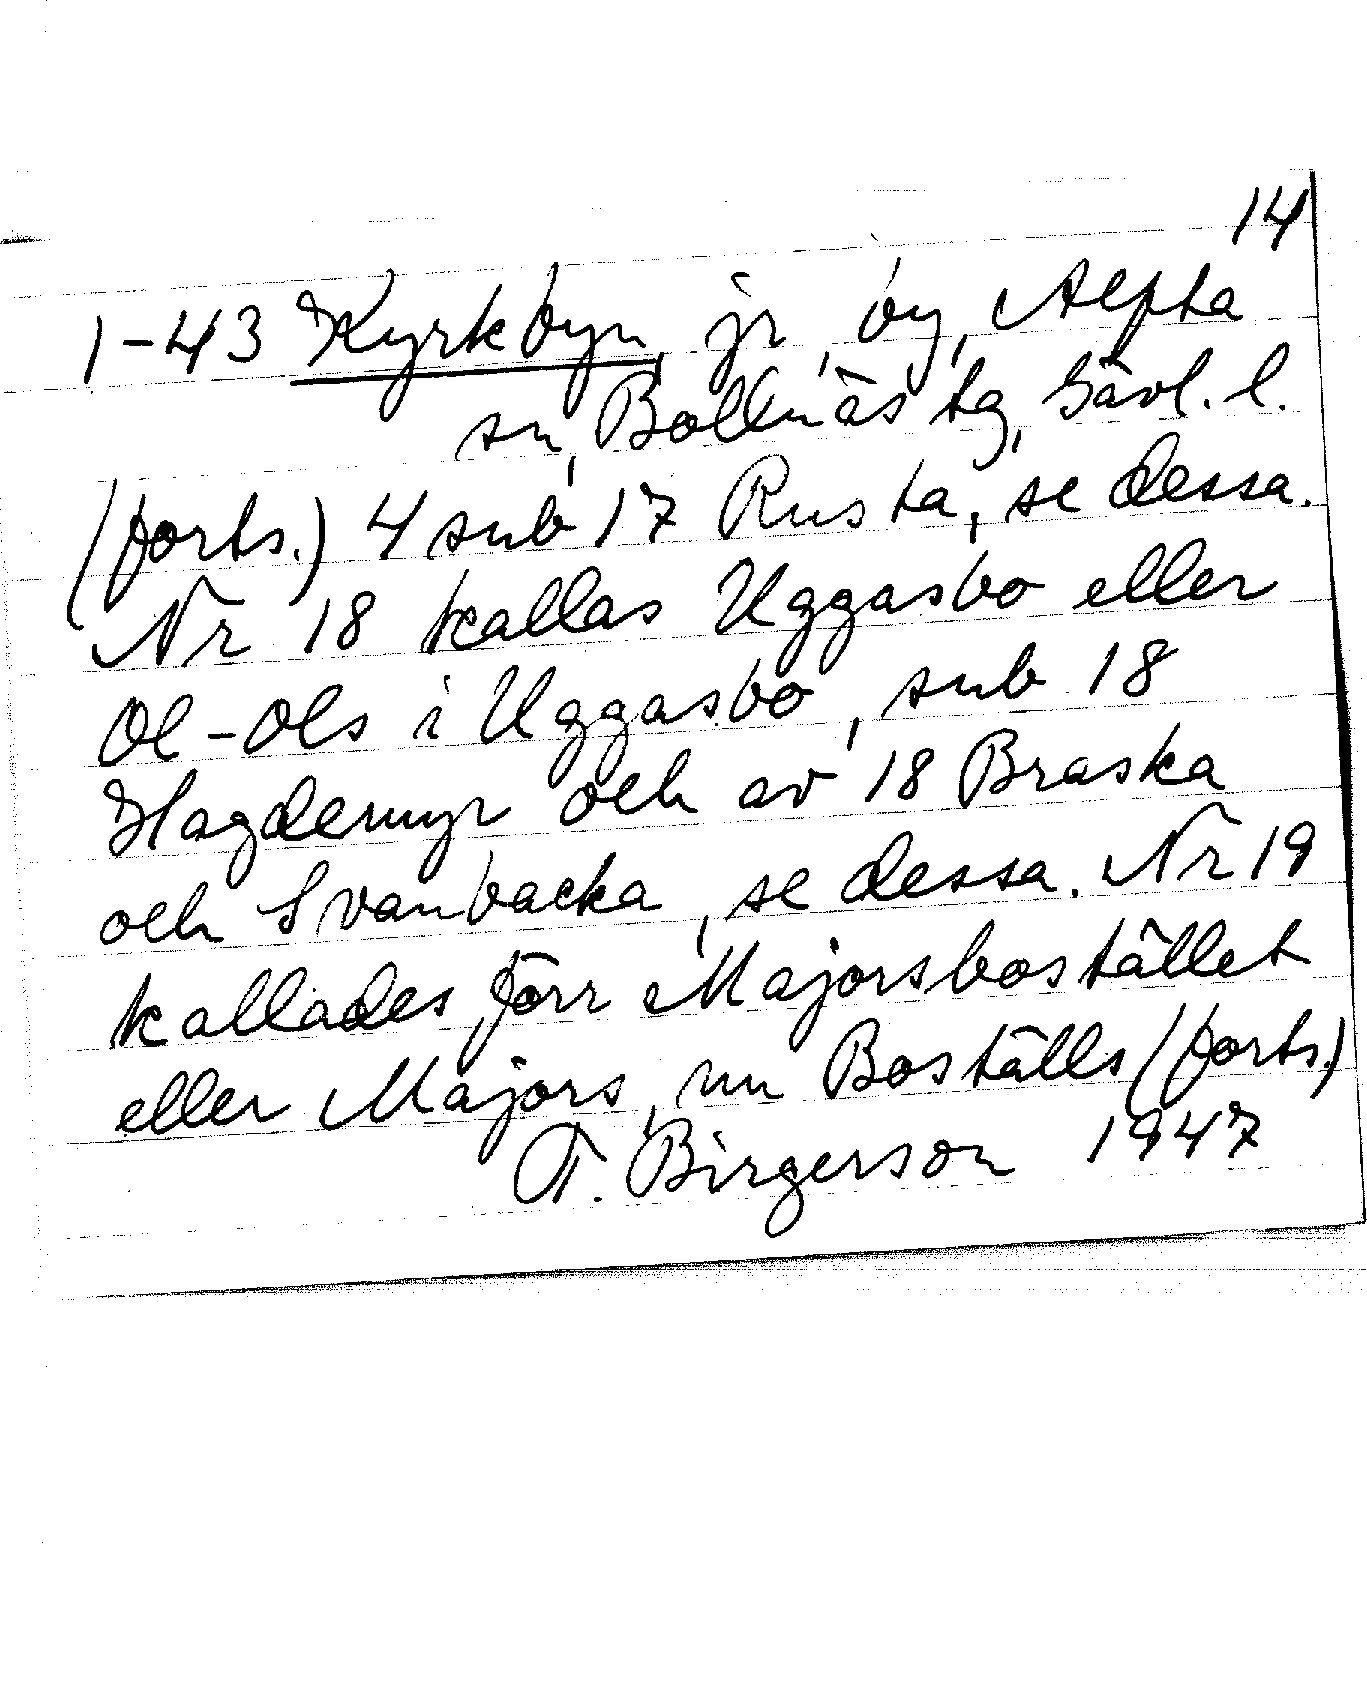 14
1-43 Kyrkbyn, jr, by, Alfta
sn, Bollnäs tg, Gävl. l.
(forts.) 4 sub 17 Rusta, se dessa.
Nr 18 kallas Uggasbo eller
Ol-Ols i Uggasbo, sub 18
Hagdemyr och av 18 Braska
och Svanbacka, se dessa. Nr 19
kallades förr Majorsbostället
eller Majors, nu Boställs (forts.)
T. Birgerson 1947